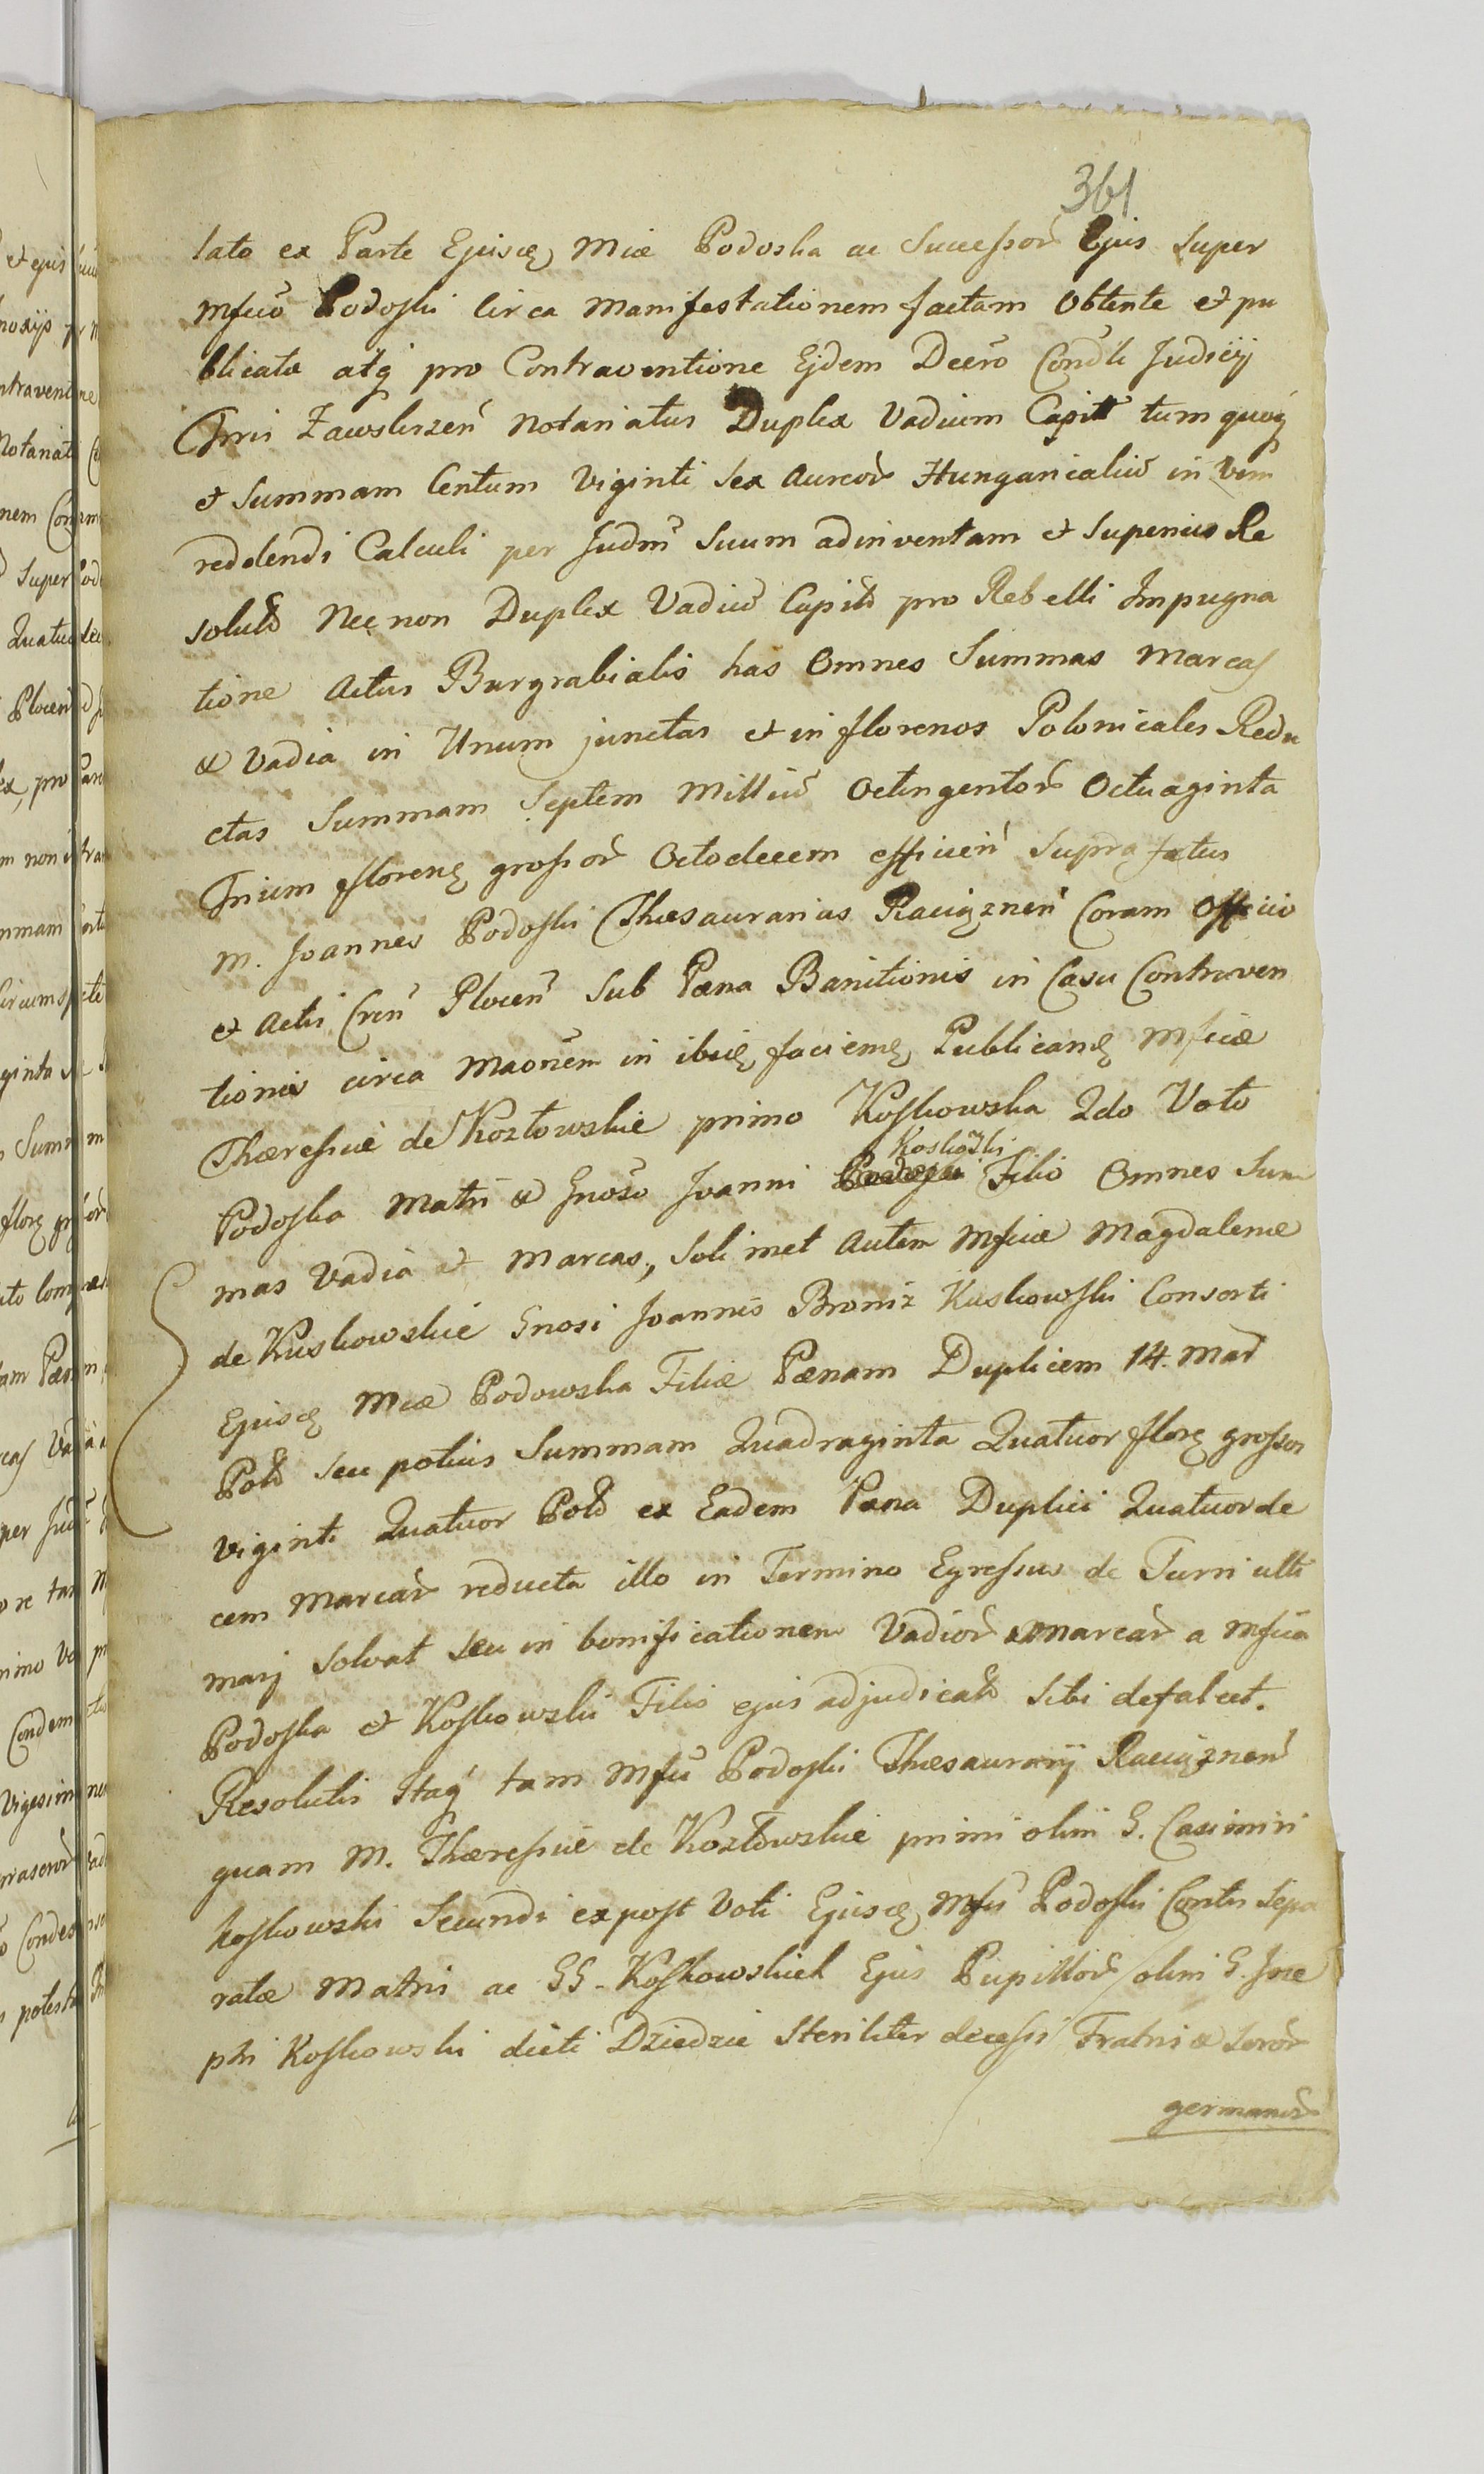 361
lato ex Parte Ejusdę Mcæ Podoska ac Successor̃ Ejus super
Mfcũo Podoski Circa Manifestationem factam Obtente et pu
blicata atq̃ pro Contraventione Ejdem Decro Condli Judicÿ
Tnis Zawskrzeń Notariatus Duplex Vadium Capitt tum quoq̃
et Summam Centum Viginti Sex Aureor̃ Hungaricaliũ in Vim
reddendi Calculi per Judm̃ Suum adinventam et Superius Re
solutã Nec non Duplex Vadiũ Capitã pro Rebelli Impugna
tione Actus Burgrabialis has Omnes Summas Marcas
& Vadia in Unum junctas et in florenos Polonicales Redu
ctas Summam Septem Milliũ Octingentor̃ Octuaginta
Trium florenę grossor̃ Octodecem efficień supra fatus
M. Joannes Podoski Thesaurarius Raciąznen Coram Officio
et Actis Cren̄ Plocen̄ Sub Pæna Banitionis in Casu Contraven
tionis circa Maonem̃ in ibię faciemę, Publicanę Mficæ
Theressiæ de Kozłowskie primo Koskowska 2do Voto
Podoska Matri & Gnoso Joanni Koskowski Filio Omnes Sum
mas Vadia et Marcas, Soli met Autem Mficæ Magdalenæ
de Kuskowskie Gnosi Joannis Broniz Kuskowski Consorti
Ejusdę Mcæ Podowska Filiæ Pænam Duplicem 14. Mar̃
Polõ seu potius Summam Quadraginta Quatuor florę grossos
viginti Quatuor Polõ ex Eadem Pæna Duplici Quatuorde
cem Marcar̃ reducta illo in Termino Egressus de Turri ulti
marj Solvat seu in bonificationem Vadior̃ & Marcar̃ a Mficа
Podoska et Koskowski Filio ejus adjudicatã Sibi defalcet.
Resolutis Itaq̃ tam Mfci Podoski Thesaurarÿ Raciąznen̄
quam M. Theressiæ de Kozłowskie primi olim G. Casimiri
Koskowski Secundi expost Voti Ejusdę Mfci Podoski Contis Sepa
ratæ Matris ac GG. Koskowskich Ejus Pupillor̃ olim G. Jose
phi Koskowski dicti Dziedzic Steriliter decessi Fratris & Soror̃
germanor̃